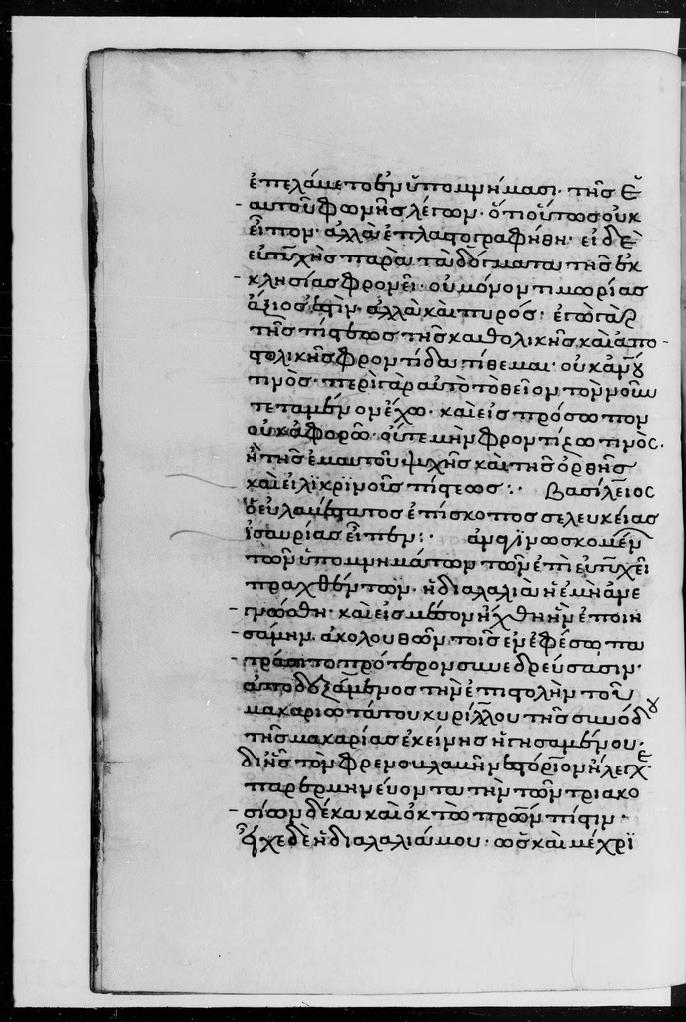 ἐπελάμετο ἐν ὑπομνήμασι· τῆς ἑ
αυτοῦ φωνῆς λέγων· ὅτι οὕτως οὐκ
εἶπον· ἀλλὰ ἐπλαστογραφήθη· εἰ δὲ
εὐτυχὴς παρὰ τὰ δόγματα τῆς ἐκ
κλησίας φρονεῖ· οὐ μόνον τιμωρίας
ἄξιός ἐστιν· ἀλλὰ καὶ πυρός· ἐγὼ γὰρ
τῆς πίστεως τῆς καθολικῆς καὶ ἀπο
στολικῆς φροντίδα τίθεμαι· οὐκ ἀνου
τινὸς· περὶ γὰρ αὐτὸ τὸ θεῖον τὸν νοῦν
τεταμένον ἔχω· καὶ εἰς πρόσωπον
οὐκ ἀφορῶ· οὔτε μὴν φροντίζω τινὸς·
ἢ τῆς ἐμαυτοῦ ψυχῆς καὶ τῆς ὀρθῆς
καὶ εἰλϊκρϊνοῦς πίστεως: Βασίλειος
ὁ εὐλαβέστατος ἐπίσκοπος σελευκείας
ἰσαυρίας εἶπεν: ἀναγϊνωσκομέν
τῶν ὑπομνημάτων τῶν ἐπὶ εὐτυχεῖ
πραχθέντων· ἡ διαλαλιὰ ἡ ἐμὴ ἀνε
γνώσθη· καὶ εἰς μέσον ἤχθη ἣν ἐποιη
σάμην, ἀκολουθῶν τοῖς ἐν ἐφέσῳ πα
τράσι τὸ πρότερον συνεδρεύσασιν·
ἀποδεξάμενος τὴν ἐπιστολὴν τοῦ
μακαριωτάτου κυρίλλου τῆς συνόδου
τῆς μακαρίας ἐκείνης ἡγησαμένου·
δι ἧς τὸν φρενουλαβῆ νεστόριον ἤλεγχε
παρερμηνεύοντα τὴν τῶν τριακο
σίων δέκα καὶ ὀκτὼ πρων πίστιν·
εἶχε δὲ ἡ διαλαλιά μου· ὡς καὶ μέχρϊ